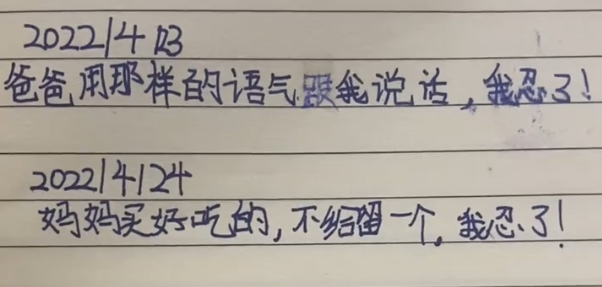 2022/4/23
爸爸用那样的语气跟我说话，我忍了！
2022/4/24
妈妈买好吃的，不给留一个，我忍了！